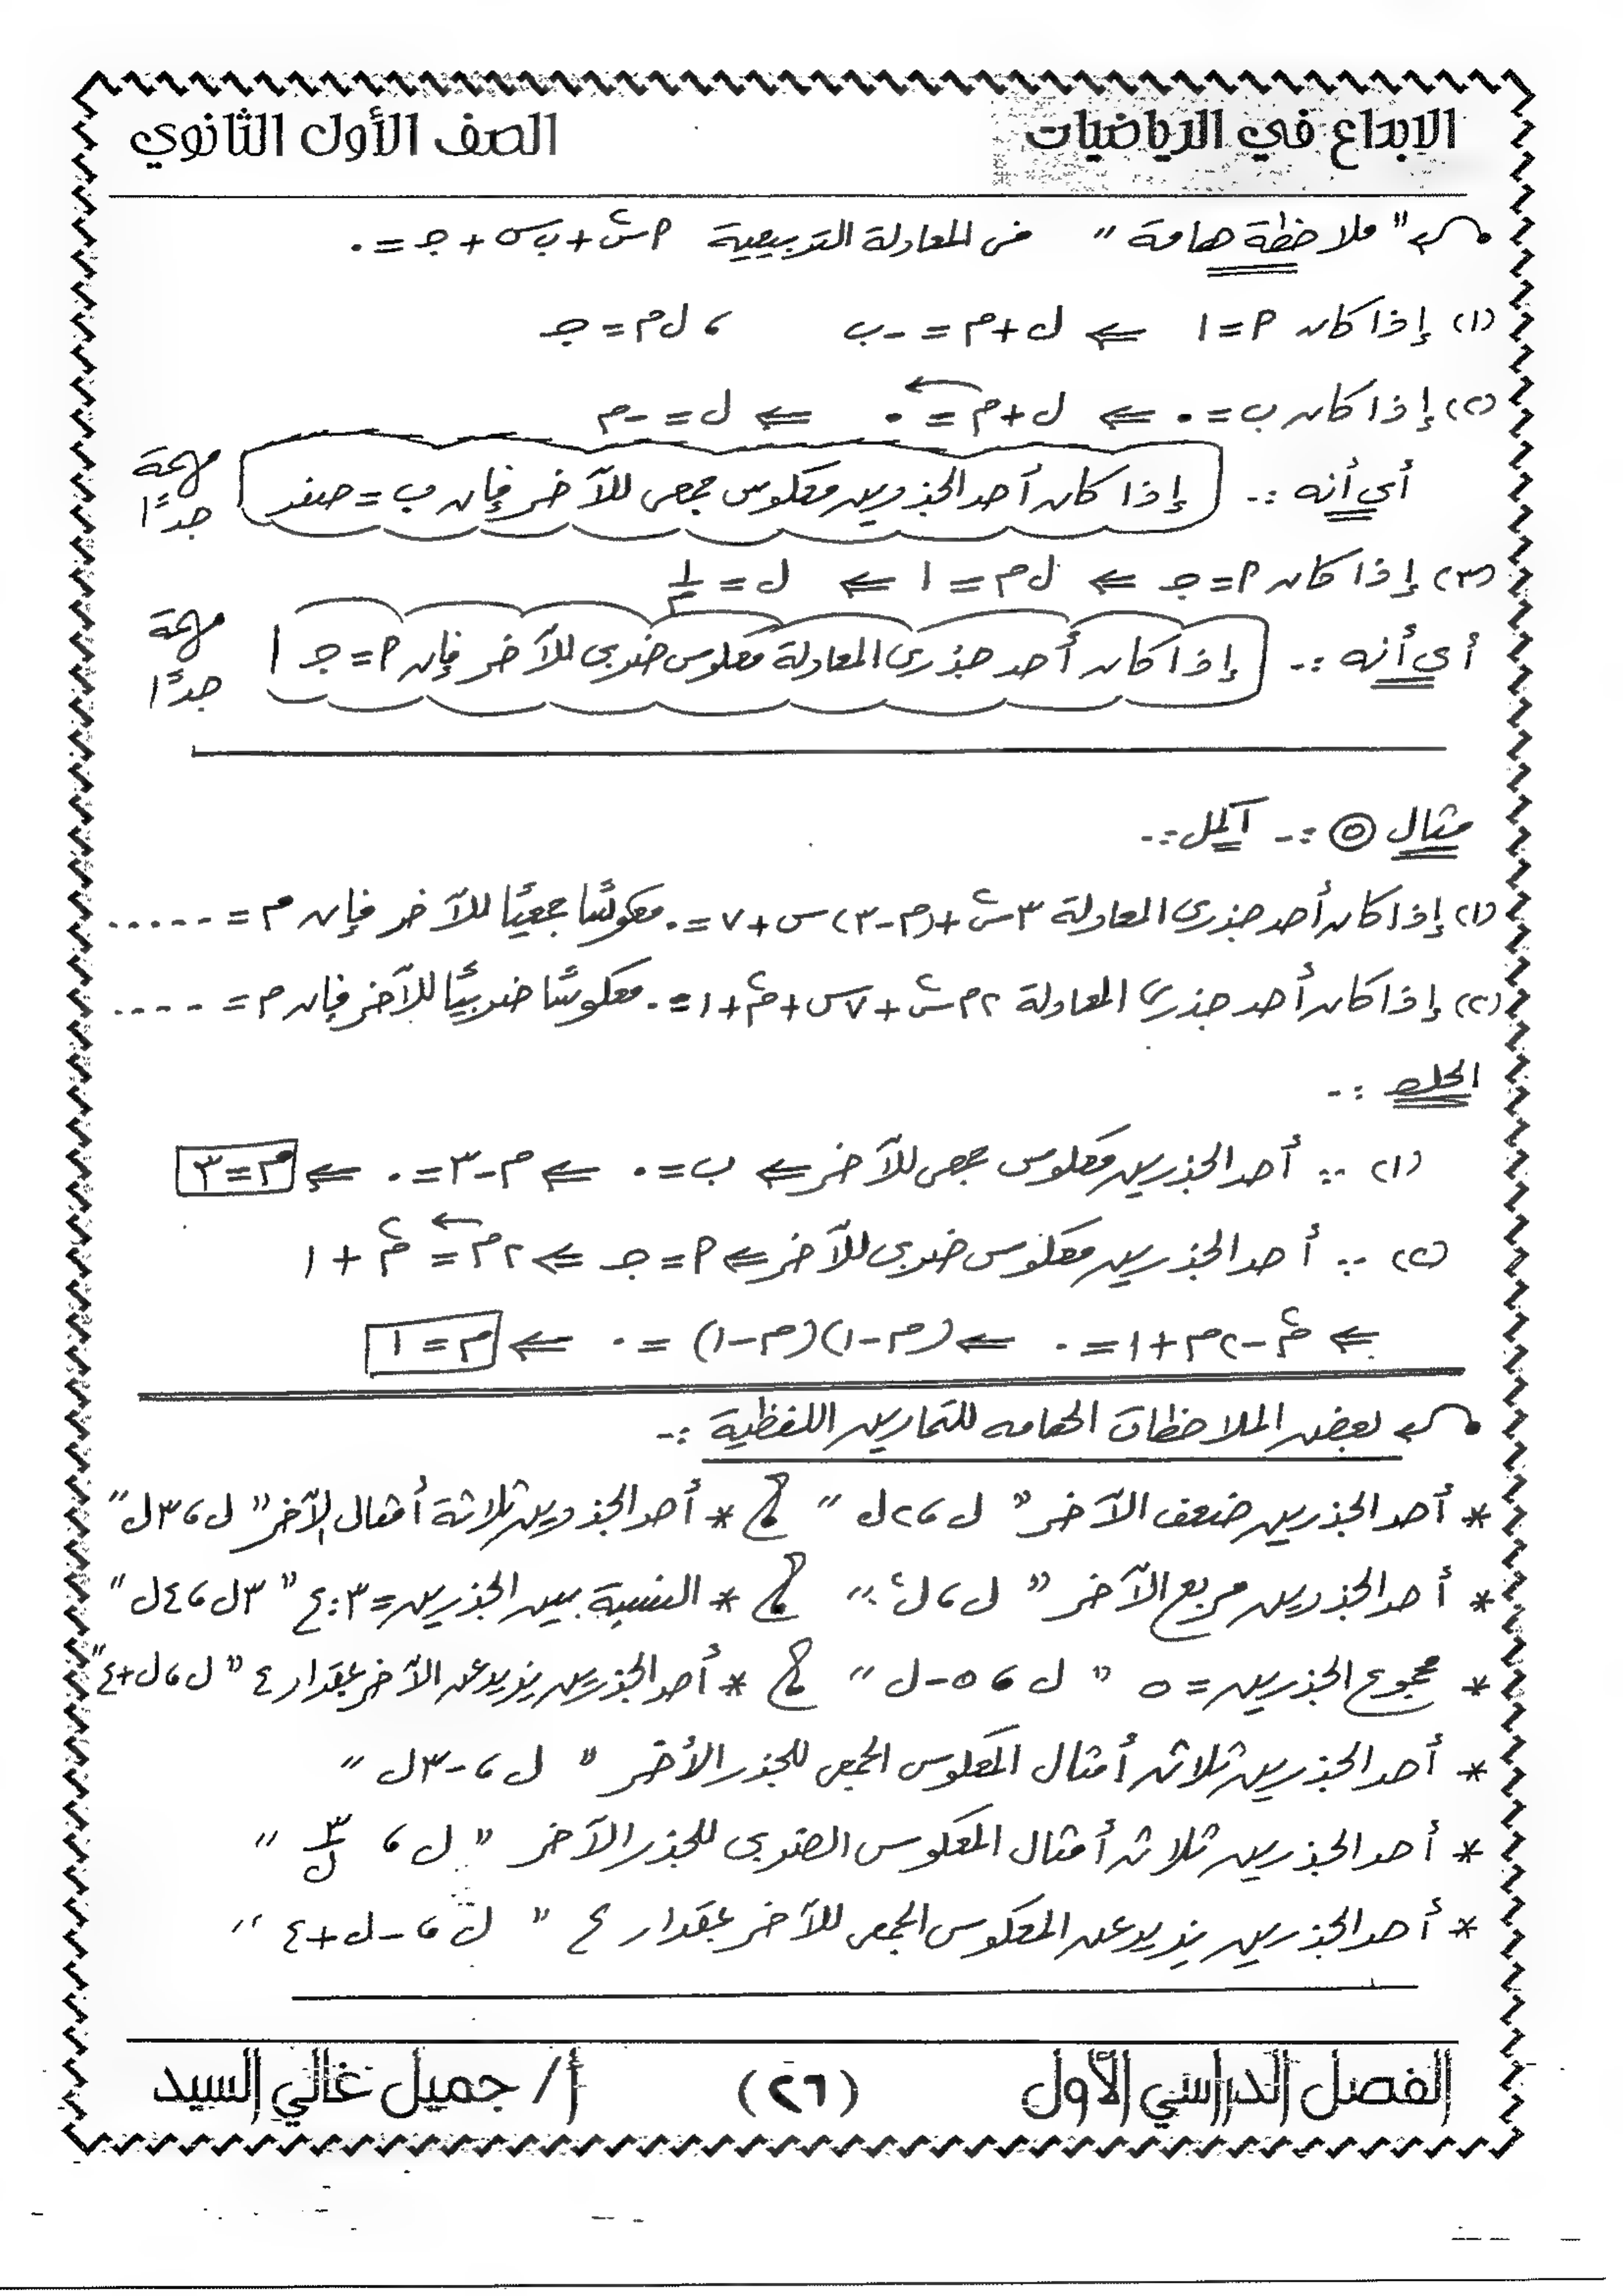 الابداع في الرياضيات
الصف الأول الثانوي
"ملاحظة هامة" في المعادلة التربيعية ٢س٢ + ب س + جـ = ٠
(١) إذا كان ٢ = ١ ⇐ ل + م = -ب ، ل م = جـ
(٢) إذا كان ب = ٠ ⇐ ل + م = ٠ ⇐ ل = -م
أي أنه :- إذا كان أحد الجذرين معكوس جمعى للآخر فإن ب = صفر مهمة جدًا
(٣) إذا كان ٢ = جـ ⇐ ل م = ١ ⇐ ل = ١/م
أى أنه :- إذا كان أحد جذرى المعادلة معكوس ضربى للآخر فإن ٢ = جـ مهمة جدًا
مثال ٥ :- أكمل :-
(١) إذا كان أحد جذرى المعادلة ٣س٢ + (م - ٣) س + ٧ = ٠ معكوسًا جمعيًا للآخر فإن م = .....
(٢) إذا كان أحد جذرى المعادلة ٢م س٢ + ٧س + م٢ + ١ = ٠ معكوسًا ضربيًا للآخر فإن م = ....
الحل :-
(١) ∵ أحد الجذرين معكوس جمعى للآخر ⇐ ب = ٠ ⇐ م - ٣ = ٠ ⇐ م = ٣
(٢) ∵ أحد الجذرين معكوس ضربى للآخر ⇐ ٢ = جـ ⇐ ٢م = م٢ + ١
⇐ م٢ - ٢م + ١ = ٠ ⇐ (م - ١)(م - ١) = ٠ ⇐ م = ١
بعض الملاحظات الهامه للتمارين اللفظية :-
* أحد الجذرين ضعف الآخر " ل ، ٢ل " * أحد الجذرين ثلاثة أمثال الآخر " ل ، ٣ل "
* أحد الجذرين مربع الآخر " ل ، ل٢ " * النسبة بين الجذرين = ٣ : ٤ " ٣ل ، ٤ل "
* مجموع الجذرين = ٥ " ل ، ٥ - ل " * أحد الجذرين يزيد عن الآخر بمقدار ٤ " ل ، ل + ٤ "
* أحد الجذرين ثلاثة أمثال المعكوس الجمعى للجذر الأخر " ل ، -٣ل "
* أحد الجذرين ثلاثة أمثال المعكوس الضربى للجذر الآخر " ل ، ٣/ل "
* أحد الجذرين يزيد عن المعكوس الجمعى للآخر بمقدار ٤ " ل ، -ل + ٤ "
الفصل الدراسي الأول
(٢٦)
أ/ جميل غالي السيد